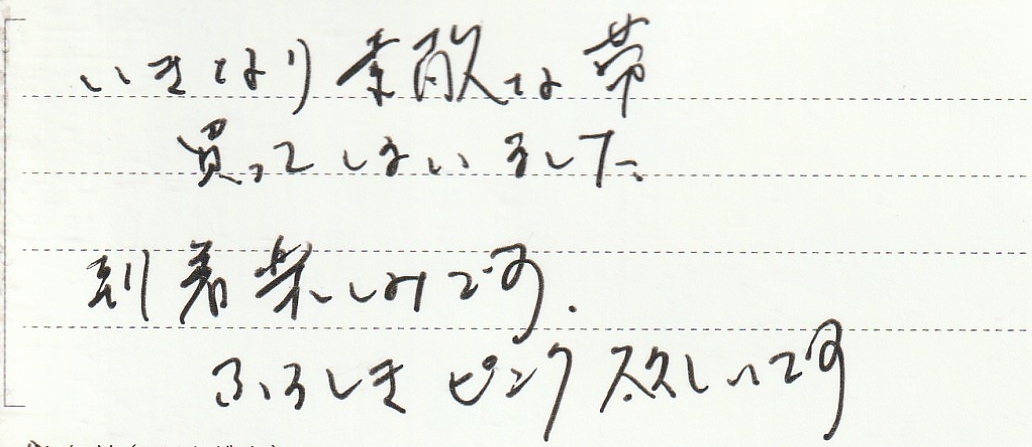 いきなり素敵な帯
買ってしまいました
到着楽しみです.
ふろしきピンク欲しいです